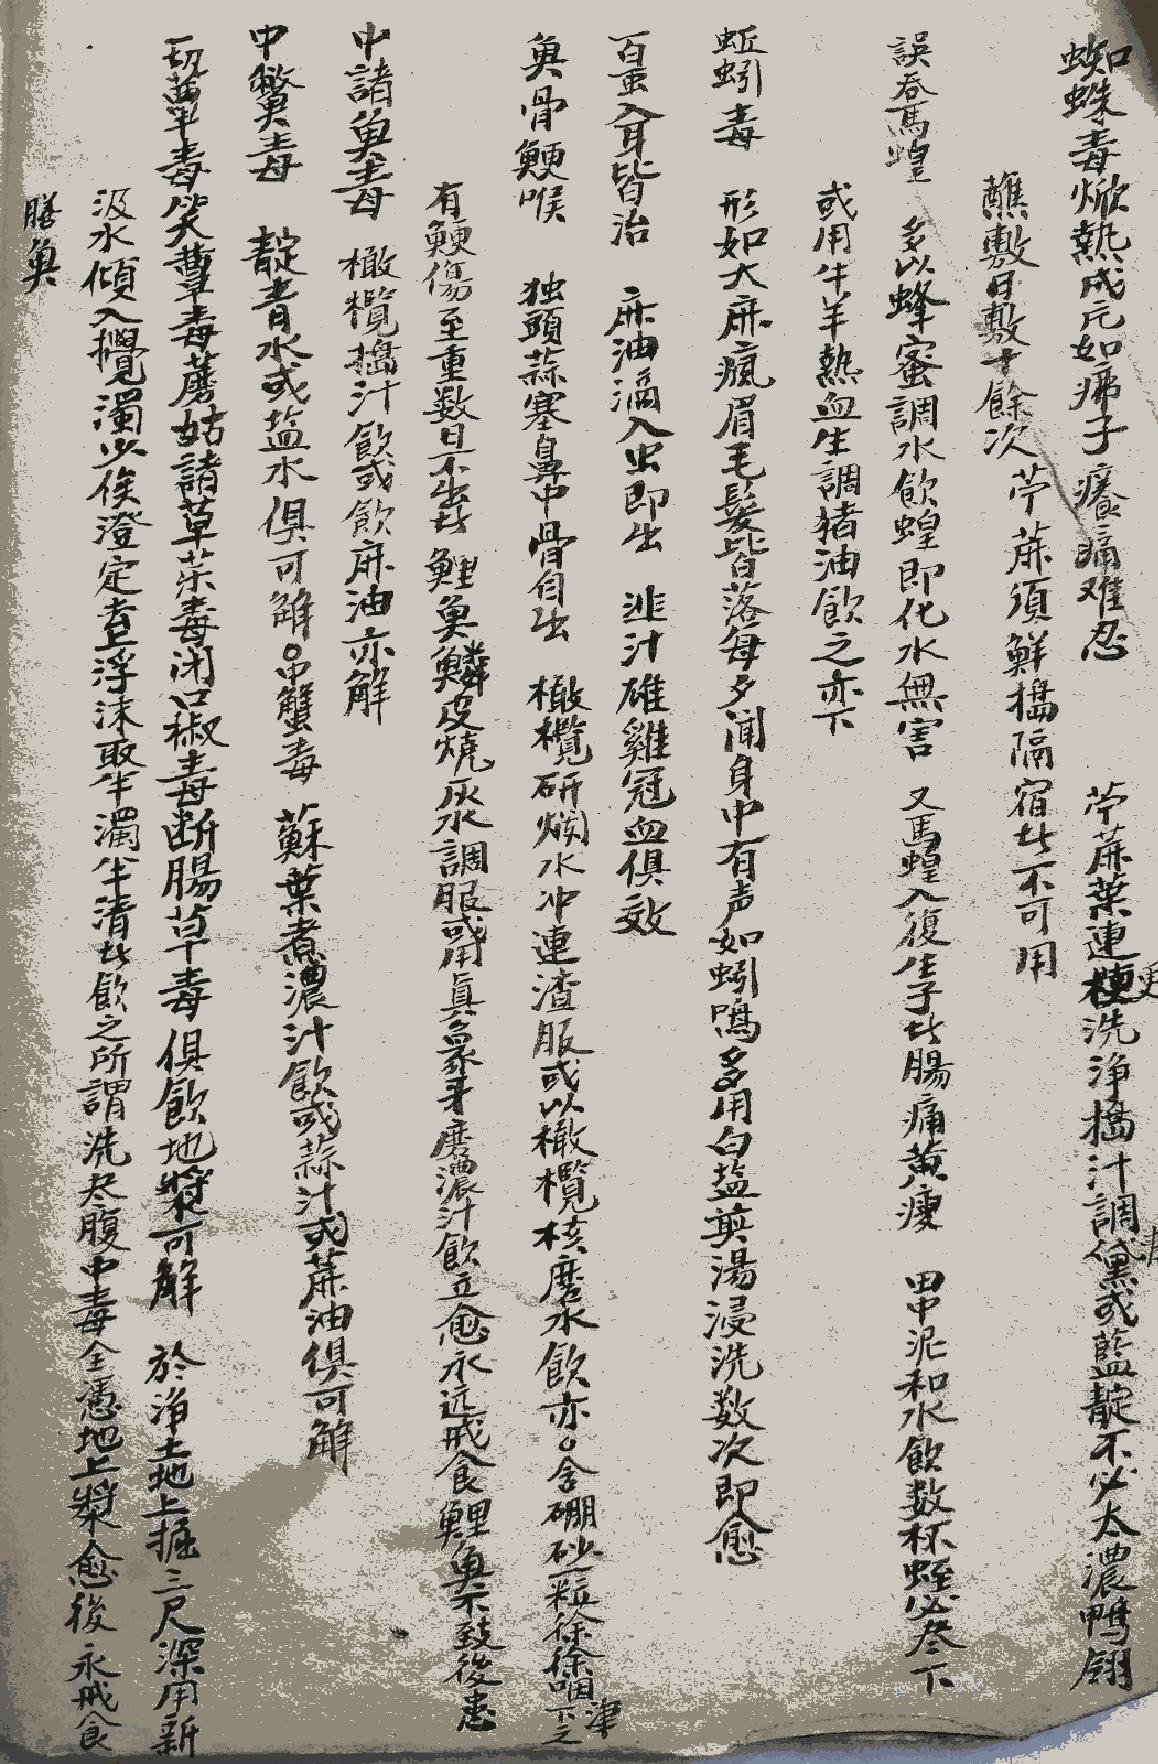 蜘蛛毒焮熱成片如疿子癢痛难忍　苧蔴葉連梗洗净搗汁調靛或藍靛不必太濃鴨翎
蘸敷日敷十餘次　苧蔴須鮮搗隔宿者不可用
誤吞馬蝗　多以蜂蜜調水飲蝗即化水無害　又馬蝗入腹生子者腸痛黄瘦　田中泥和水飲数杯蛭必尽下
或用牛羊熱血生調猪油飲之亦下
蚯蚓毒　形如大麻瘋眉毛髮皆落每夕聞身中有声如蚓鳴多用白盐煎湯浸洗数次即愈
百虫入耳皆治　麻油滴入虫即出　韭汁雄雞冠血俱效
魚骨鯁喉　独頭蒜塞鼻中骨自出　橄欖研爛水冲連渣服或以橄欖核磨水飲亦。含硼砂一粒徐徐咽下之津
有鯁傷至重数日不出者鯉魚鱗皮燒灰水調服或用真象牙磨濃汁飲立愈永远戒食鯉魚不致後患
中諸魚毒　橄欖搗汁飲或飲麻油亦解
中鱉毒　靛青水或盐水俱可解。中蟹毒　蘇葉煮濃汁飲或蒜汁或蔴油俱可解
一切蕈毒笑蕈毒蘑姑諸草菜毒闭口椒毒断腸草毒俱飲地漿可解　於净土地上掘三尺深用新
汲水傾入攪濁少俟澄定去上浮沫取半濁半清者飲之所謂洗尽腹中毒全憑地上漿愈後永戒食
膳魚